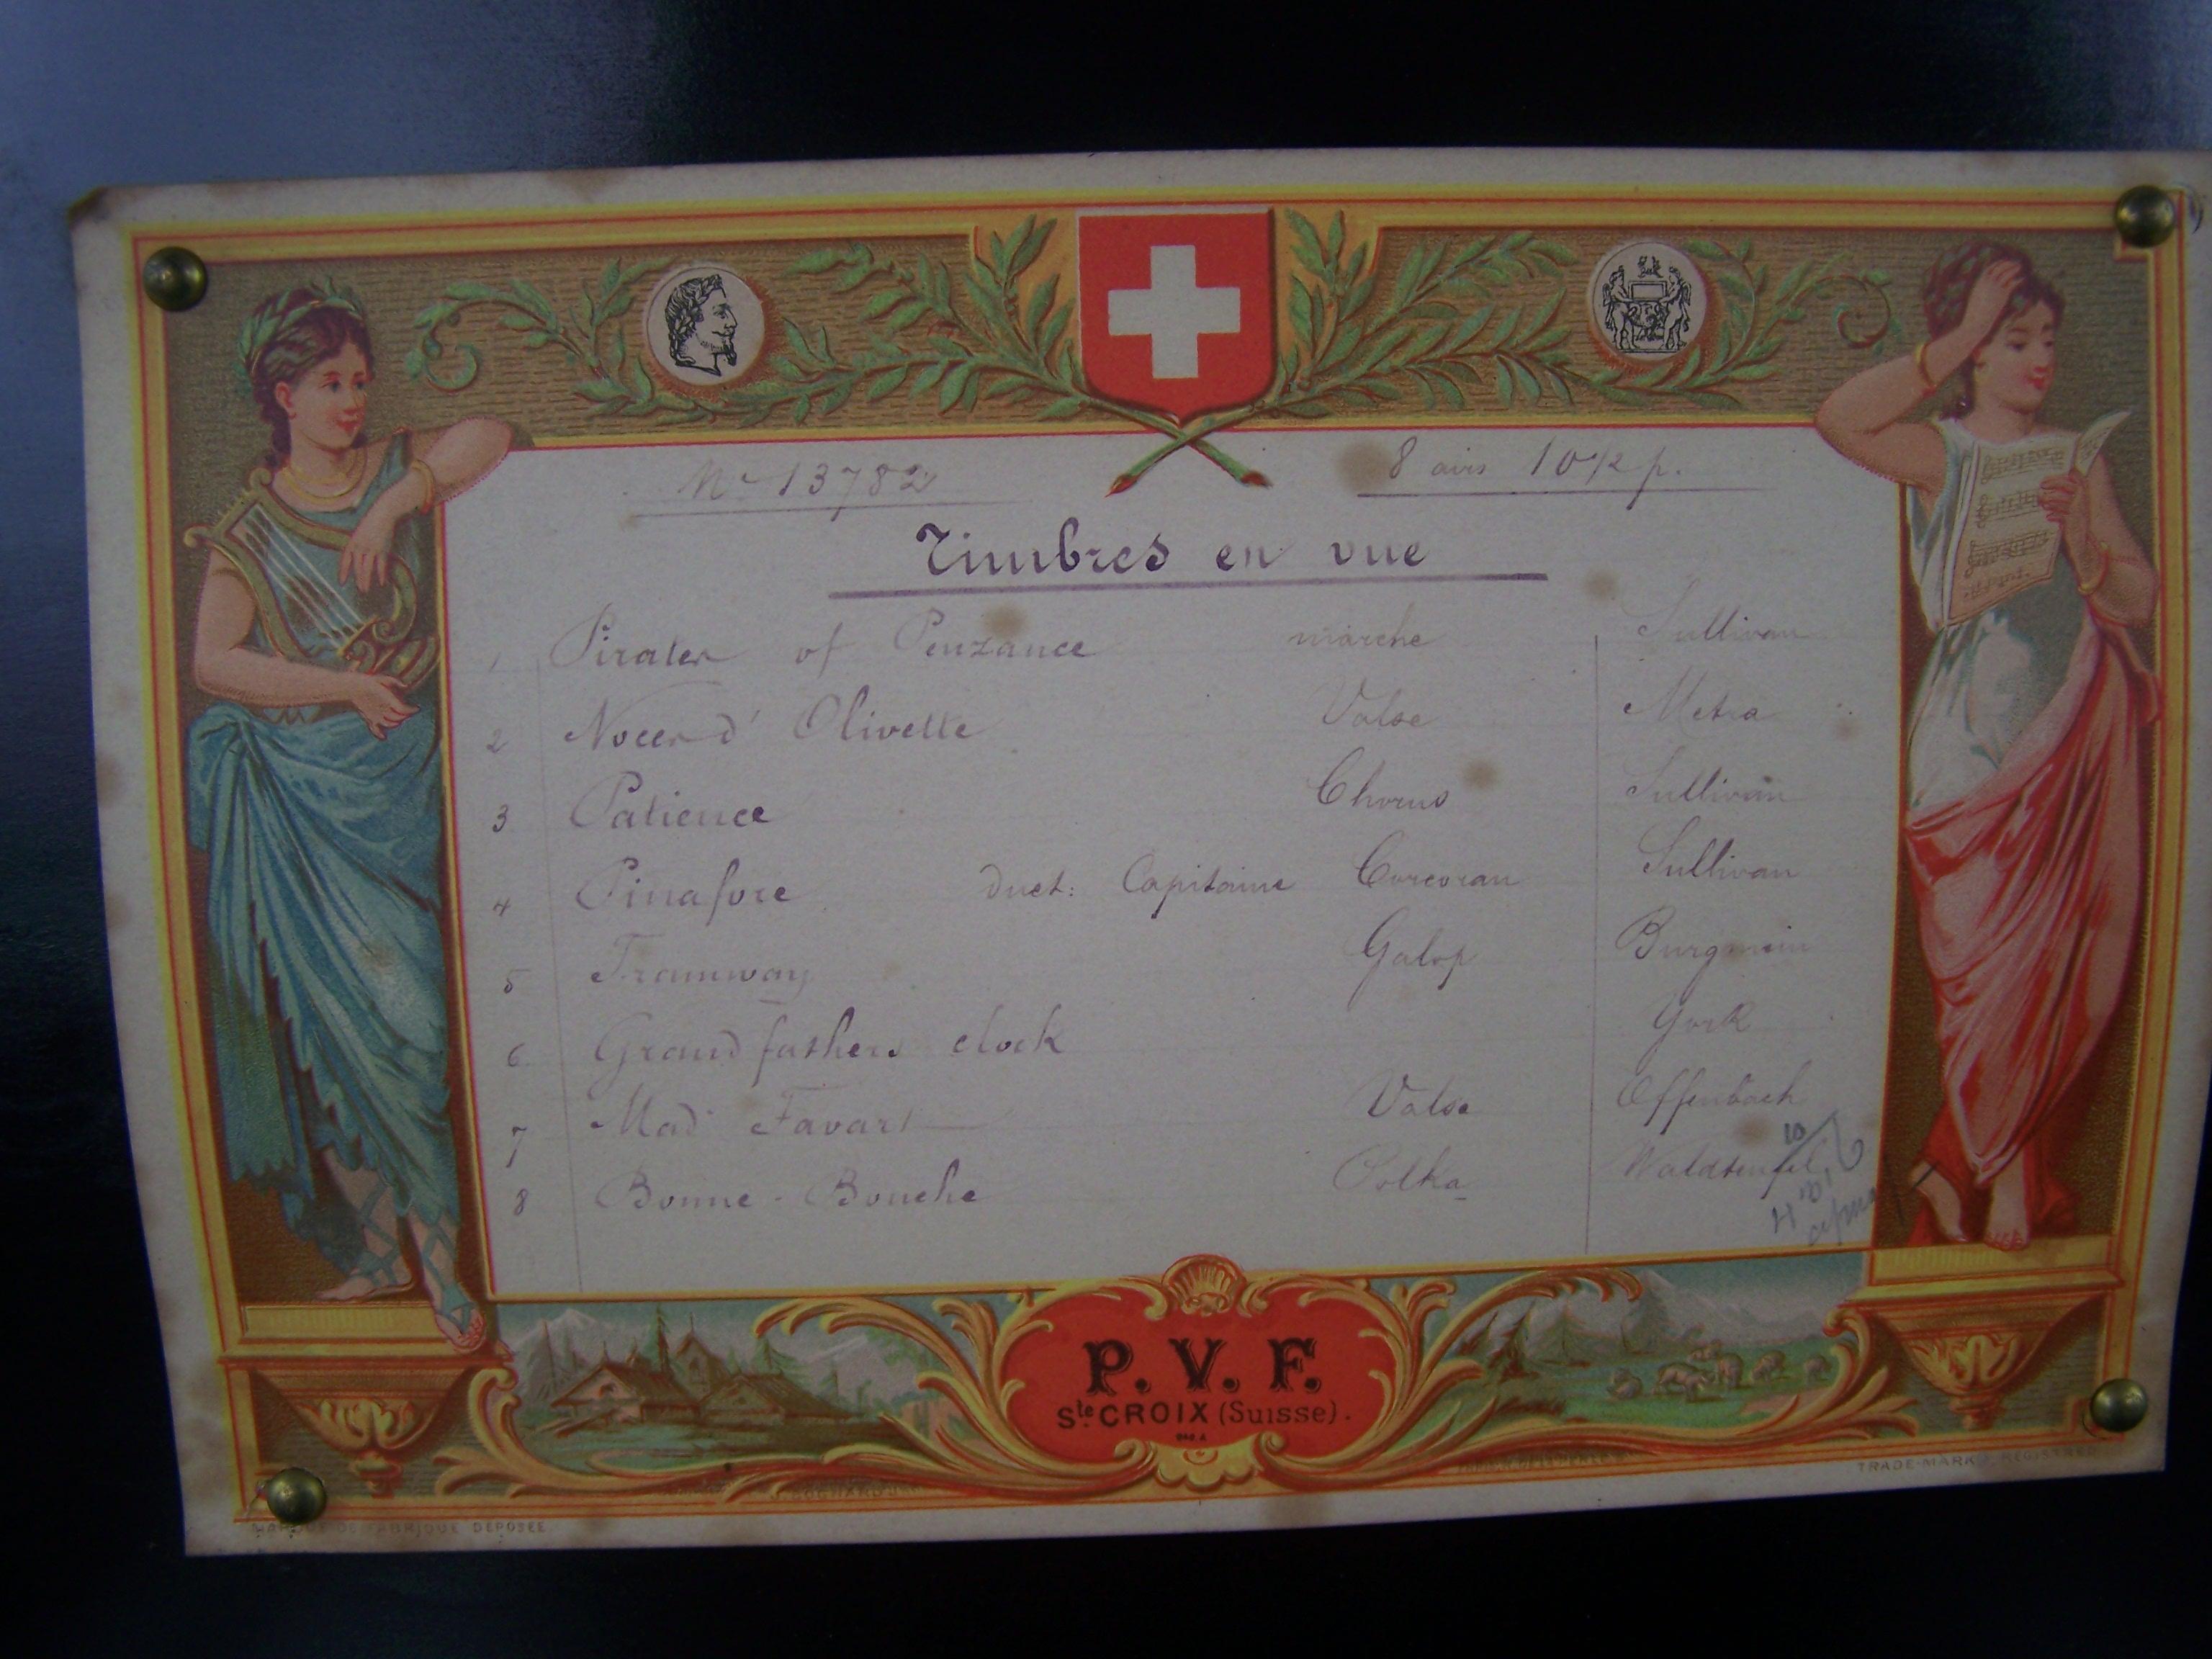 No 13782 8 airs 10 1/2 p.
Timbres en vue
1 Pirates of Penzance marche Sullivan
2 Noces d' Olivette Valse Metra
3 Patience Chorus Sullivan
4 Pinafore duet: Capitaine Corcoran Sullivan
5 Tramway Galop Burgmein
6 Grandfathers clock York
7 Mad Favart Valse Offenbach
8 Bonne-Bouche Polka Waldteufel
P.V.F.
Ste CROIX (Suisse).
MARQUE DE FABRIQUE DÉPOSÉE
TRADE-MARK